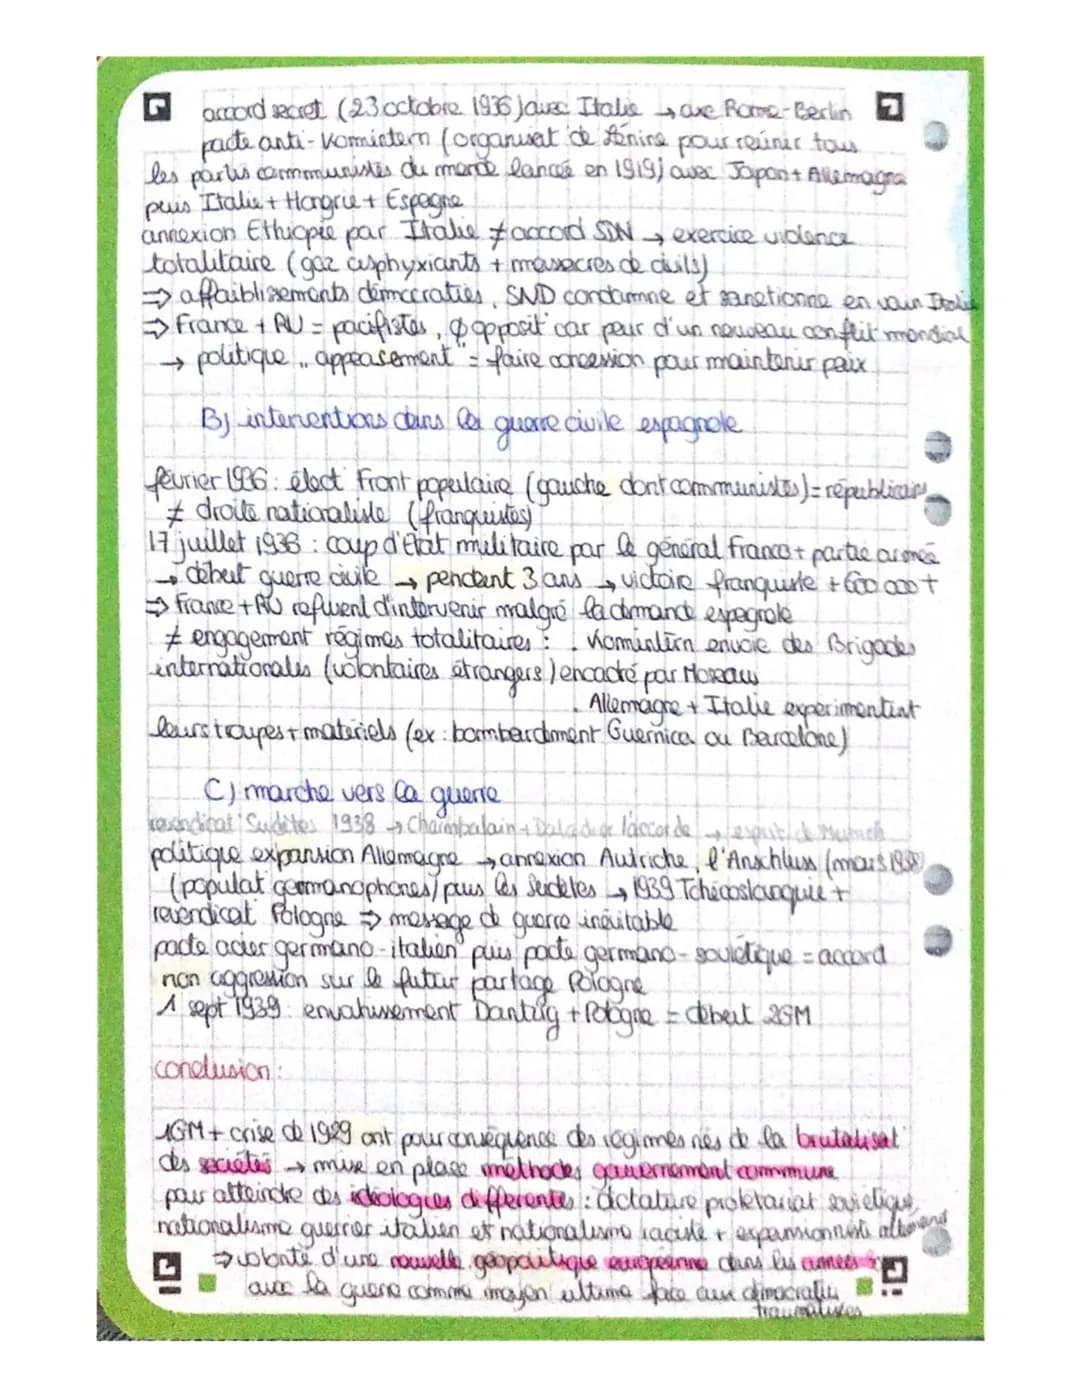 accord secret (23 octobre 1936) avec Italie → axe Rome-Berlin
pacte anti-Komintern (organisat° de Lénine pour réunir tous
les partis communistes du monde lancée en 1919) avec Japon + Allemagne
puis Italie + Hongrie + Espagne
annexion Ethiopie par Italie ≠ accord SDN → exercice violence
totalitaire (gaz asphyxiants + massacres de civils)
⇒ affaiblissements démocraties, SND condamne et sanctionne en vain Italie
⇒ France + RU = pacifistes, ϕ opposit° car peur d'un nouveau conflit mondial
→ politique "appeasement" = faire concession pour maintenir paix
B) interventions dans la guerre civile espagnole
février 1936 : élect° Front populaire (gauche dont communistes) = républicains
≠ droite nationaliste (franquistes)
17 juillet 1936 : coup d'Etat militaire par le général Franco + partie armée
→ début guerre civile → pendant 3 ans → victoire franquiste + 600 000 †
⇒ France + RU refusent d'intervenir malgré la demande espagnole
≠ engagement régimes totalitaires : . Komintern envoie des Brigades
internationales (volontaires étrangers) encadré par Moscou
. Allemagne + Italie expérimentent
leurs troupes + matériels (ex : bombardement Guernica ou Barcelone)
C) marche vers la guerre
revendicat° Sudètes 1938 → Chambalain + Daladier l'accorde → esprit de Munich
politique expansion Allemagne → annexion Autriche, l'Anschluss (mars 1938)
(populat° germanophones) puis les Sudètes → 1939 Tchécoslovaquie +
revendicat° Pologne ⇒ message de guerre inévitable
pacte acier germano-italien puis pacte germano-soviétique = accord
non aggression sur le futur partage Pologne
1 sept 1939 : envahissement Dantzig + Pologne = début 2GM
conclusion :
1GM + crise de 1929 ont pour conséquence des régimes nés de la brutalisat°
des sociétés → mise en place méthodes gouvernement commune
pour atteindre des idéologies différentes : dictature prolétariat soviétique,
nationalisme guerrier italien et nationalisme raciste + expansionniste allemand
⇒ volonté d'une nouvelle géopolitique européenne dans les années
avec la guerre comme moyen ultime face aux démocraties
traumatisées